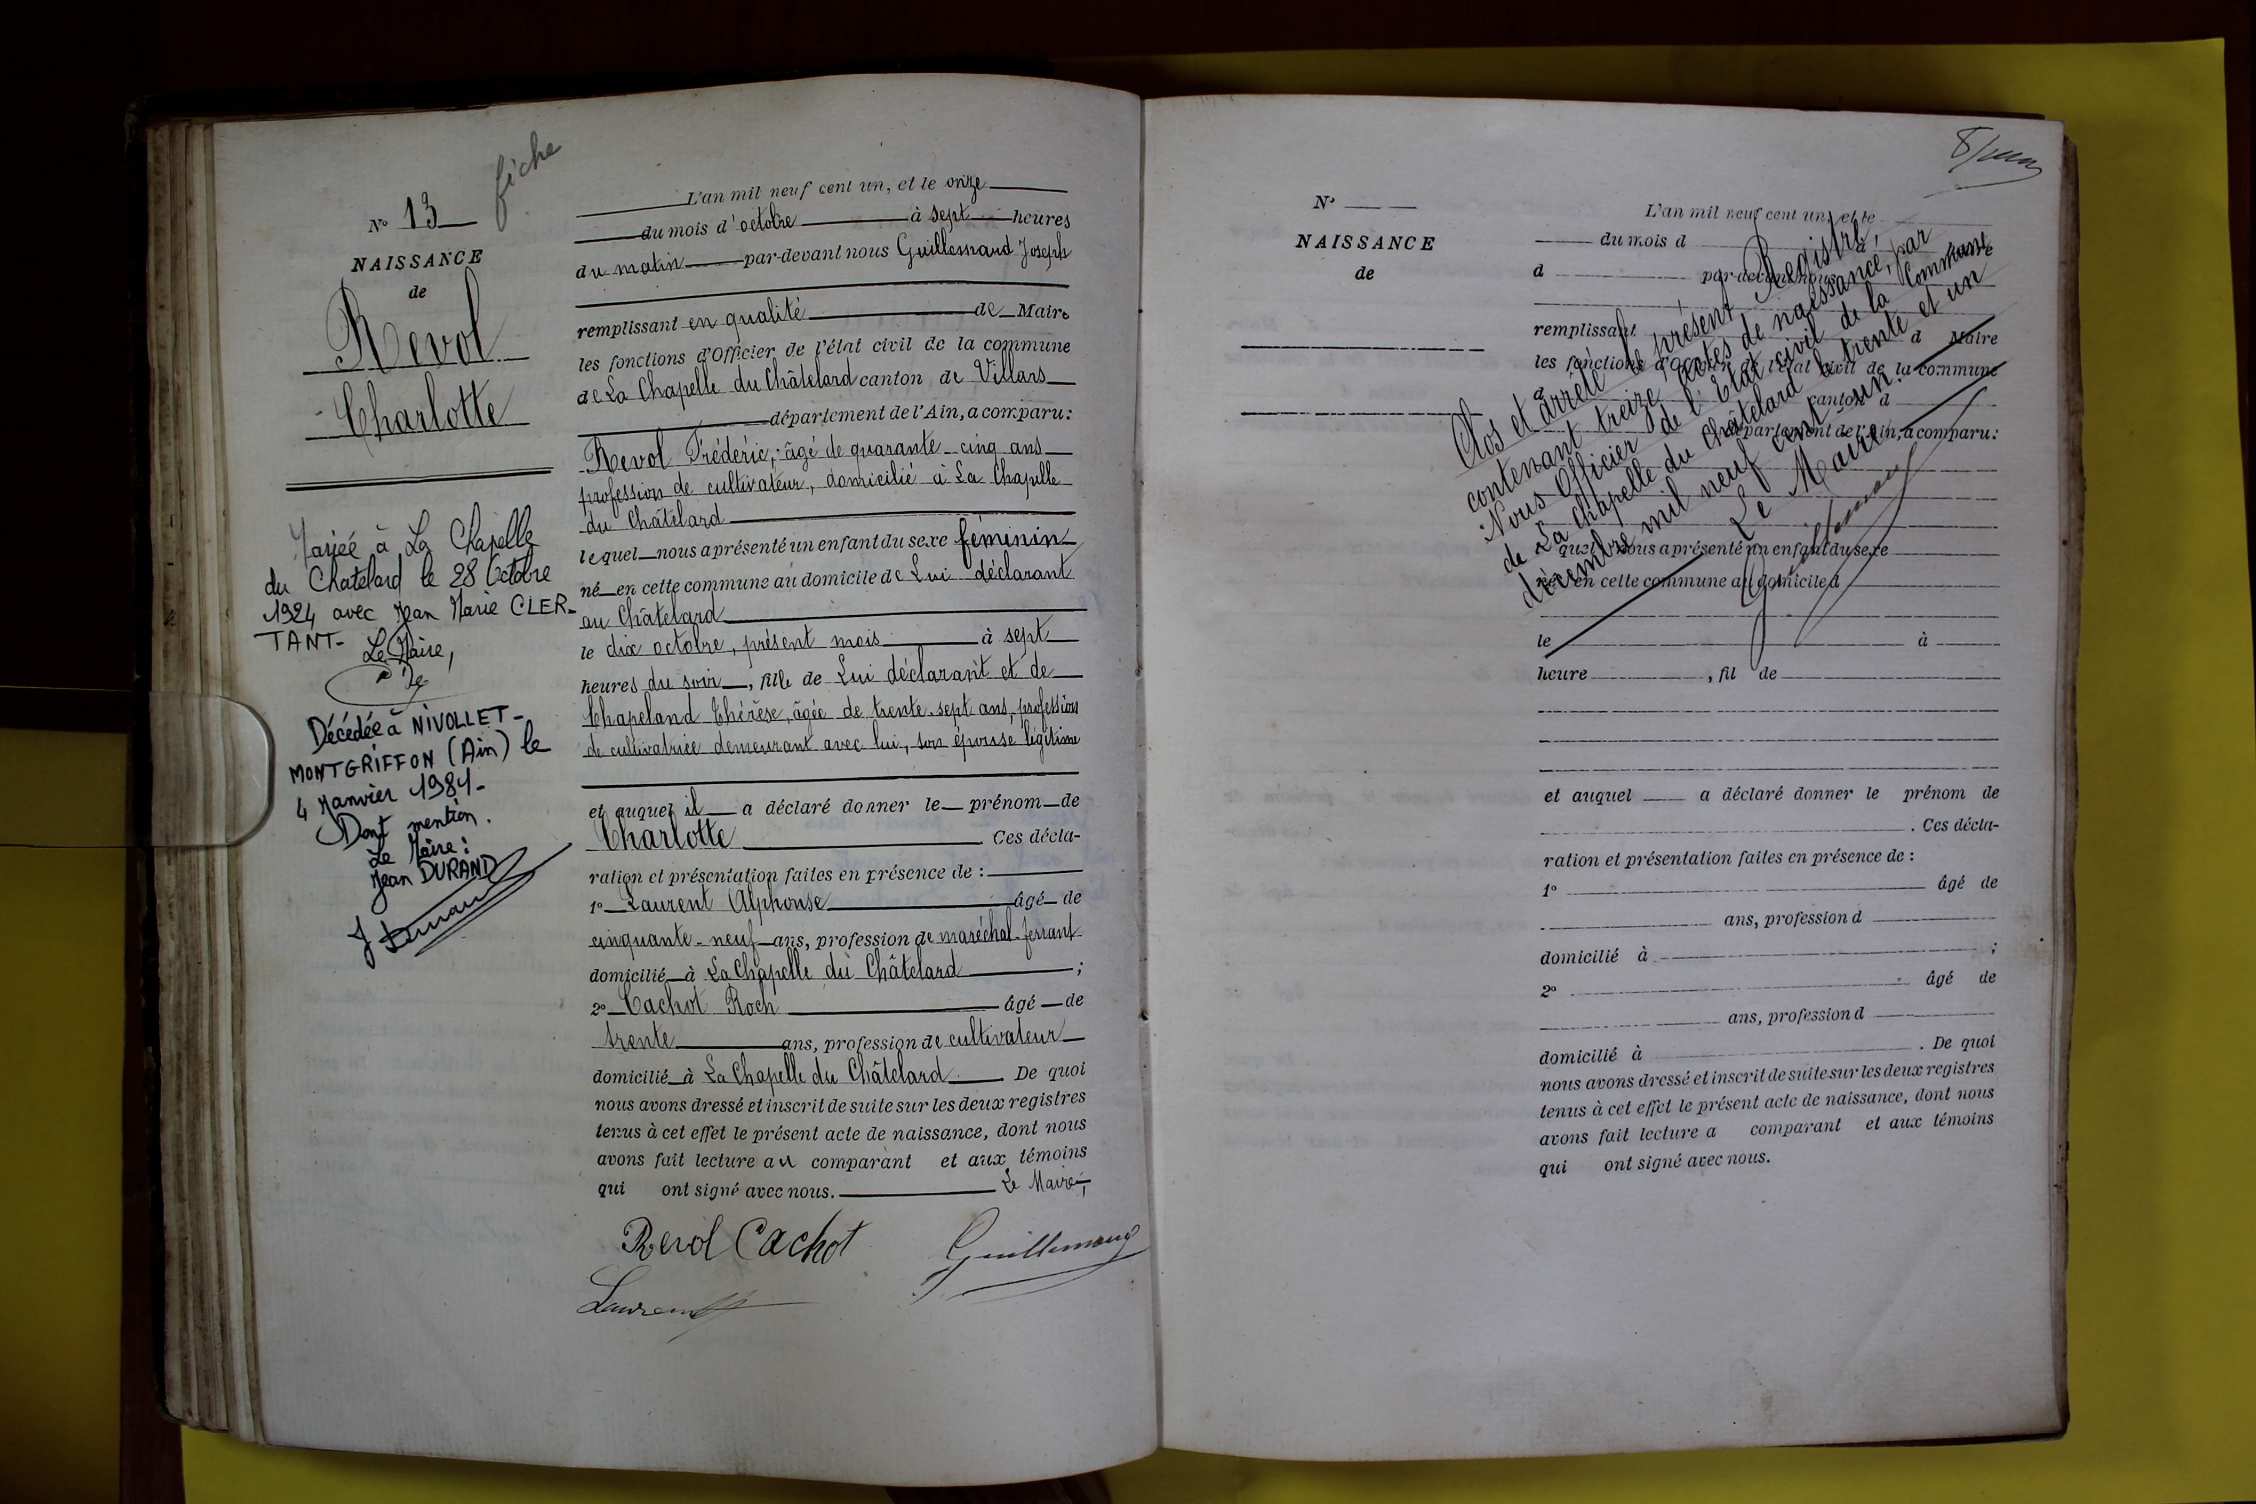 fiche
N° 13
NAISSANCE
de
Revol
Charlotte
Mariée à La Chapelle
du Chatelard le 28 Octobre
1924 avec Jean Marie CLER-
TANT- Le Maire,
Décédée à NIVOLLET-
MONTGRIFFON (Ain) le
4 Janvier 1981-
Dont mention.
Le Maire:
Jean DURAND
L'an mil neuf cent un, et le onze
du mois d'octobre à sept heures
du matin par-devant nous Guillemaud Joseph
remplissant en qualité de Maire
les fonctions d'Officier de l'état civil de la commune
de La Chapelle du Châtelard canton de Villars
département de l'Ain, a comparu:
Revol Frédéric, âgé de quarante-cinq ans
profession de cultivateur, domicilié à La Chapelle
du Châtelard
lequel nous a présenté un enfant du sexe féminin
né en cette commune au domicile de Lui déclarant
au Châtelard
le dix octobre, présent mois à sept
heures du soir, fille de Lui déclarant et de
Chapeland Thérèse, âgée de trente-sept ans, profession
de cultivatrice demeurant avec lui, son épouse légitime
et auquel il a déclaré donner le prénom de
Charlotte Ces décla-
ration et présentation faites en présence de :
1° Laurent Alphonse âgé de
cinquante-neuf ans, profession de maréchal-ferrant
domicilié à La Chapelle du Châtelard ;
2° Cachot Roch âgé de
trente ans, profession de cultivateur
domicilié à La Chapelle du Châtelard. De quoi
nous avons dressé et inscrit de suite sur les deux registres
tenus à cet effet le présent acte de naissance, dont nous
avons fait lecture au comparant et aux témoins
qui ont signé avec nous. Le Maire,
Revol Cachot Guillemaud
Laurent
N°
NAISSANCE
de
L'an mil neuf cent un, et le
du mois d à
d par-devant nous
remplissant d Maire
les fonctions d'Officier de l'état civil de la commune
d canton d
département de l'Ain, a comparu:
quel nous a présenté un enfant du sexe
né en cette commune au domicile d
le à
heure , fil de
et auquel a déclaré donner le prénom de
. Ces décla-
ration et présentation faites en présence de :
1° âgé de
ans, profession d
domicilié à ;
2° âgé de
ans, profession d
domicilié à . De quoi
nous avons dressé et inscrit de suite sur les deux registres
tenus à cet effet le présent acte de naissance, dont nous
avons fait lecture a comparant et aux témoins
qui ont signé avec nous.
Clos et arrêté le présent Registre,
contenant treize actes de naissance, par
Nous Officier de l'Etat civil de la Commune
de La Chapelle du Châtelard le trente et un
décembre mil neuf cent un.
Le Maire
Guillemaud